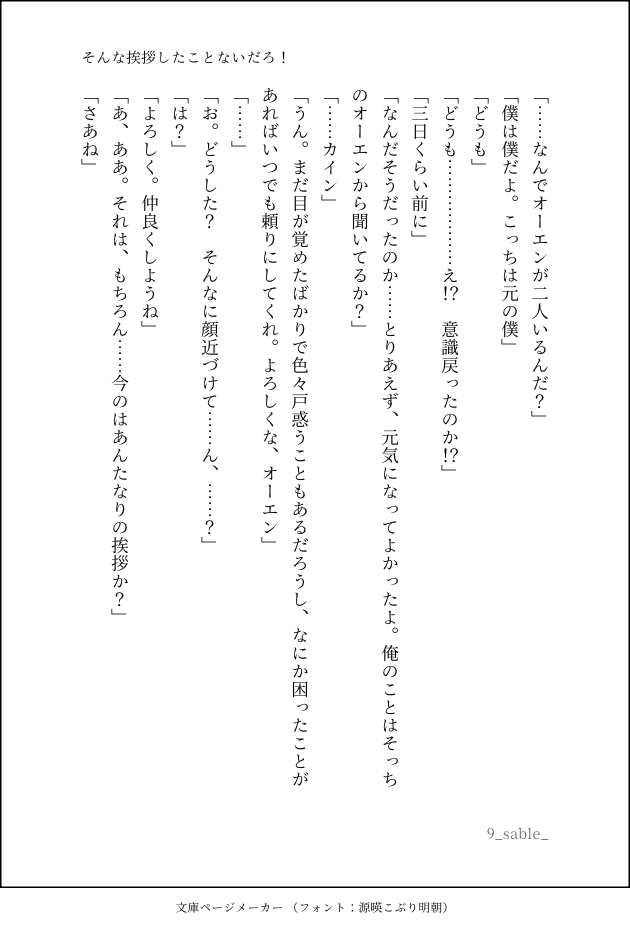 そんな挨拶したことないだろ！
「……なんでオーエンが二人いるんだ？」
「僕は僕だよ。こっちは元の僕」
「どうも」
「どうも………………え!?　意識戻ったのか!?」
「三日くらい前に」
「なんだそうだったのか……とりあえず、元気になってよかったよ。俺のことはそっち
のオーエンから聞いてるか？」
「……カイン」
「うん。まだ目が覚めたばかりで色々戸惑うこともあるだろうし、なにか困ったことが
あればいつでも頼りにしてくれ。よろしくな、オーエン」
「……」
「お。どうした？　そんなに顔近づけて……ん、……？」
「は？」
「よろしく。仲良くしようね」
「あ、ああ。それは、もちろん……今のはあんたなりの挨拶か？」
「さあね」
9_sable_
文庫ページメーカー（フォント：源暎こぶり明朝）